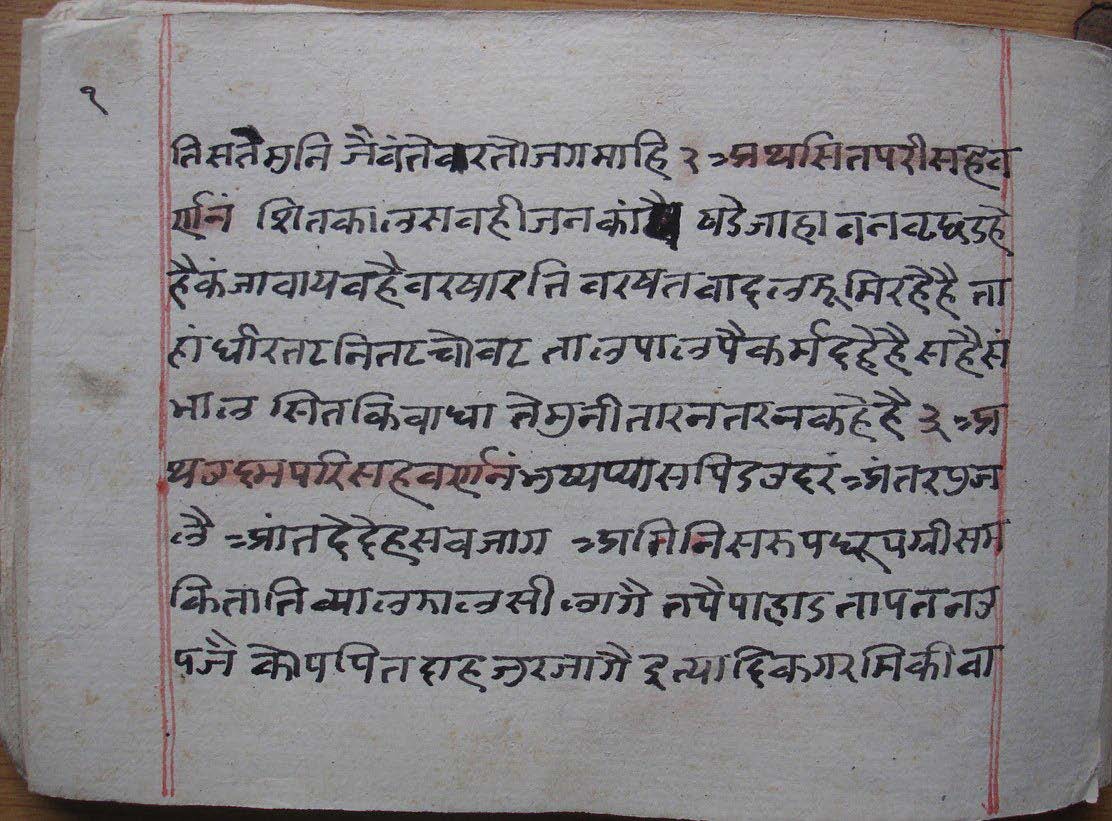 १
तिसतै मुनि जैवंते वरतो जगमाहि २ अथ सितपरीसहव
र्णनं शितकाल सवही जन कां पडै जाहा वनवछ डहे
है कंजावाय वहै वरषारति वरषत वादल झूमि रहै है ता
हां धीर तट नितट चोवट ताल पाल पै कर्म दहै है सहै सं
भाल सितकि वाधा ते मुनी तारन तरन कहे है ३ अ
थ उस्नपरिसहवर्णनं भुष्यप्यास पिडै उदरं अंतर प्रज
लै अांत दै देह सव जाग अगिनि सरुप धूप ग्रीसम
कि ताति व्याल झालसी लागै तपै पाहाड ताप तन उ
पजै कोप पित दाह जुर जागै इत्यादिक गरमि की वा